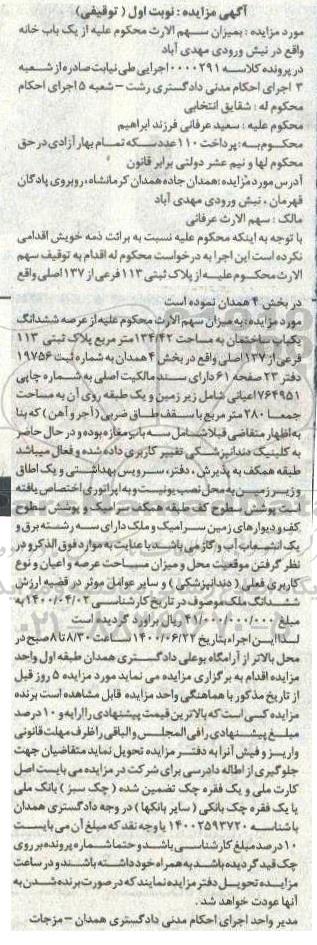 آگهی مزایده : نوبت اول ( توقیفی)
مورد مزایده : بمیزان سهم الارث محکوم علیه از یک باب خانه
واقع در نبش ورودی مهدی آباد
در پرونده کلاسه ۰۰۰۰۲۹۱ اجرایی طی نیابت صادره از شعبه
۳ اجرای احکام مدنی دادگستری رشت – شعبه ۵ اجرای احکام
محکوم له : شقایق انتخابی
محکوم علیه : سعید عرفانی فرزند ابراهیم
محکوم به: پرداخت ۱۱۰ عدد سکه تمام بهار آزادی در حق
محکوم لها و نیم عشر دولتی برابر قانون
آدرس مورد مزایده : همدان جاده همدان کرمانشاه ، روبروی پادگان
قهرمان ، نبش ورودی مهدی آباد
مالک : سهم الارث عرفانی
با توجه به اینکه محکوم علیه نسبت به برائت ذمه خویش اقدامی
نکرده است این اجرا به درخواست محکوم له اقدام به توقیف سهم
الارث محکوم علیه از پلاک ثبتی ۱۱۳ فرعی از ۱۳۷ اصلی واقع
در بخش ۴ همدان نموده است
مورد مزایده: به میزان سهم الارث محکوم علیه از عرصه ششدانگ
یکباب ساختمان به مساحت ۱۳۴/۴۲ متر مربع پلاک ثبتی ۱۱۳
فرعی از ۱۳۷ اصلی واقع در بخش ۴ همدان به شماره ثبت ۱۹۷۵۶
دفتر ۲۳ صفحه ۶۱ دارای سند مالکیت اصلی به شماره چاپی
۷۶۴۹۵۱ اعیانی شامل زیر زمین و یک طبقه روی آن به مساحت
جمعا ۲۸۰ متر مربع با سقف طاق ضربی ( آجر و آهن ) که بنا
به اظهار متقاضی قبلا شامل سه باب مغازه بوده و در حال حاضر
به کلینیک دندانپزشکی تغییر کاربری داده شده و فعال میباشد
طبقه همکف به پذیرش ، دفتر، سرویس بهداشتی و یک اطاق
و زیر زمین به محل نصب یونیت و به اپراتوری اختصاص یافته
است پوشش سطوح کف طبقه همکف سرامیک و پوشش سطوح
کف و دیوارهای زمین سرامیک و ملک دارای سه رشته برق و
یک انشعاب آب و گاز می باشد. با عنایت به موارد فوق الذکر و در
نظر گرفتن موقعیت محل و میزان مساحت عرصه و اعیان و نوع
کاربری فعلی ( دندانپزشکی ) و سایر عوامل موثر در قضیه ارزش
ششدانگ ملک موصوف در تاریخ کارشناسی ۱۴۰۰/۰۴/۰۲ به
مبلغ ۴۱/۰۰۰/۰۰۰/۰۰۰ ریال برآورد گردیده است
لذا این اجرا به تاریخ ۱۴۰۰/۰۶/۲۲ ساعت ۸/۳۰ تا ۸ صبح در
محل بالاتر از آرامگاه بوعلی دادگستری همدان طبقه اول واحد
مزایده اقدام به برگزاری مزایده می نماید مورد مزایده ۵ روز قبل
از تاریخ مذکور با هماهنگی واحد مزایده قابل مشاهده است برنده
مزایده کسی است که بالاترین قیمت پیشنهادی را ارایه و ۱۰ درصد
مبلغ پیشنهادی را فی المجلس و الباقی را ظرف مهلت قانونی
واریز و فیش آنرا به دفتر مزایده تحویل نماید متقاضیان جهت
جلوگیری از اطاله دادرسی برای شرکت در مزایده می بایست اصل
کارت ملی و یک فقره چک تضمین شده ( چک سبز ) بانک ملی
یا یک فقره چک بانکی ( سایر بانکها ) در وجه دادگستری همدان
با شناسه ۱۴۰۰۲۵۹۳۷۲۰ یا وجه نقد که مبلغ آن می بایست
۱۰ درصد مبلغ کارشناسی باشد و حتما شماره پرونده بر روی
چک قید گردیده باشد به همراه خود داشته باشند و در ساعت
مزایده تحویل دفتر مزایده نمایند که در صورت برنده شدن به
آنها عودت خواهد شد .
مدیر واحد اجرای احکام مدنی دادگستری همدان – مزجات